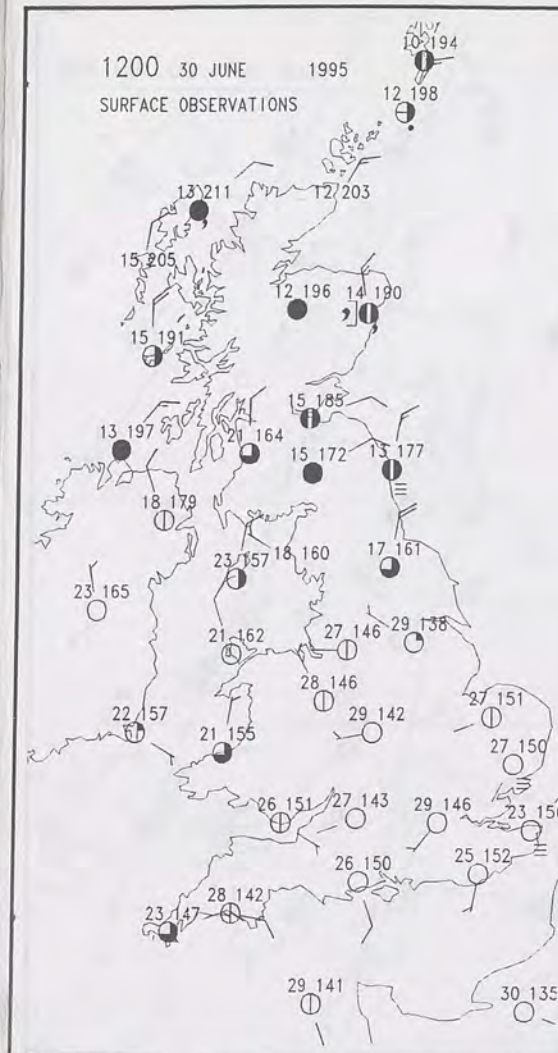 10 194
1200 30 JUNE 1995
12 198
SURFACE OBSERVATIONS
13 211
12 203
15 205
12 196
14 190
15 191
15 185
13 197
21 164
15 172
13 177
18 179
23 157
18 160
17 161
23 165
21 162
27 146
29 138
28 146
27 151
22 157
21 155
29 142
27 150
26 151
27 143
29 146
23 150
26 150
25 152
28 142
23 147
29 141
30 135